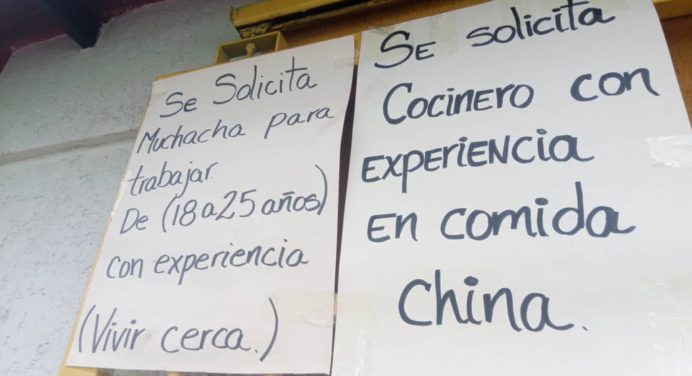 Se Solicita
Muchacha para
trabajar
De (18 a 25 años)
con experiencia
(Vivir cerca.)
SE solicita
CocinERO con
EXPERiENcia
En comida
China.